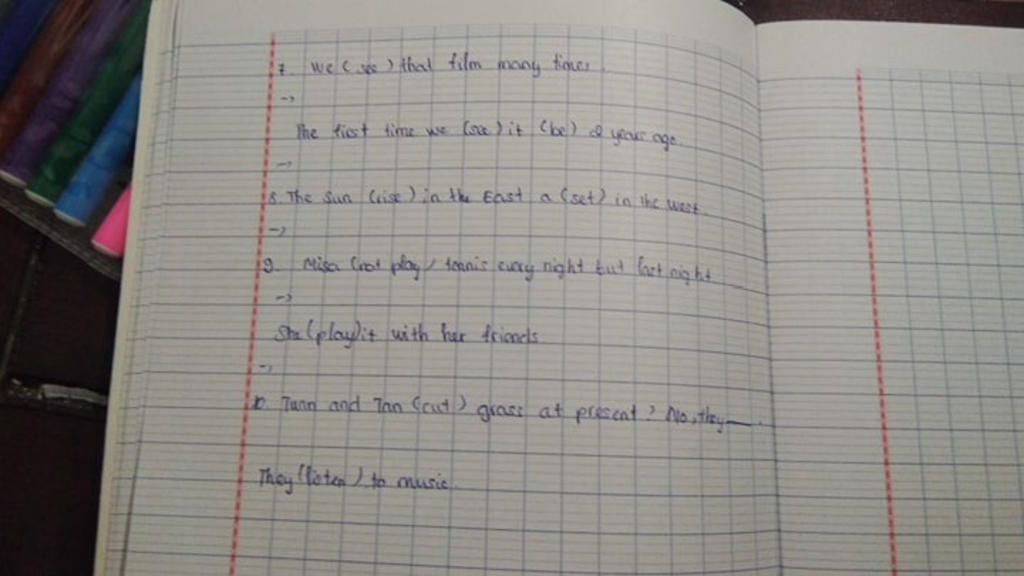 7. We (see) that film many times.
->
The first time we (see) it (be) 2 years ago.
->
8. The Sun (rise) in the East a (set) in the West.
->
9. Misa (not play) tennis every night but last night
->
She (play) it with her friends.
->
10. Tuan and Tan (cut) grass at present? No, they —.
They (listen) to music.